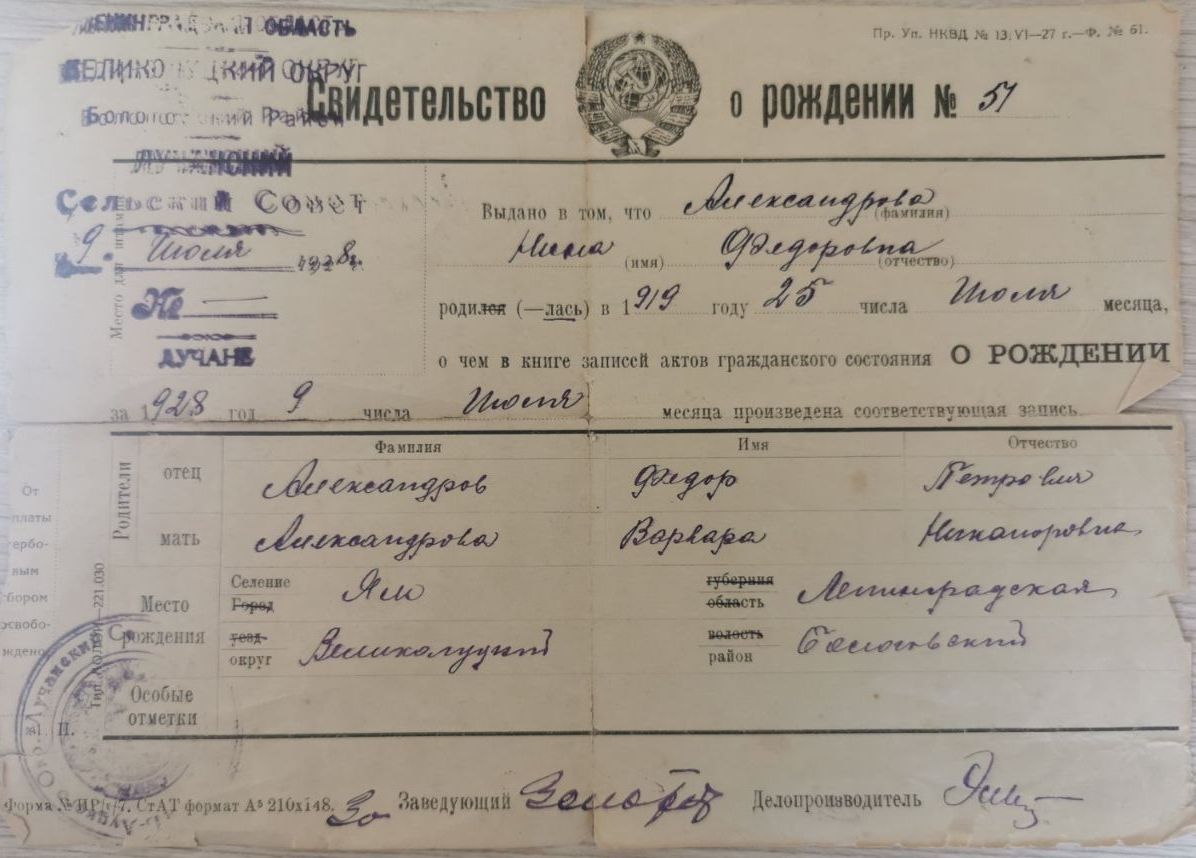 ЛЕНИНГРАДСКАЯ ОБЛАСТЬ
Пр. Уп. НКВД № 13/VI—27 г.—Ф. № 61.
ВЕЛИКОЛУЦКИЙ ОКРУГ
Свидетельство о рождении № 51
Бологовский Район
ЛУЧАНСКИЙ
Сельский Совет
Место для штампа
9 Июля 1928 г.
№
ЛУЧАНЕ
Выдано в том, что Александрова
(фамилия)
Нина (имя) Федоровна (отчество)
родился (—лась) в 1919 году 25 числа Июля месяца,
о чем в книге записей актов гражданского состояния О РОЖДЕНИИ
за 1928 год 9 числа Июля месяца произведена соответствующая запись
Фамилия Имя Отчество
Родители
отец Александров Федор Петрович
мать Александрова Варвара Никаноровна
Место Рождения
Селение Город Ям губерния область Ленинградская
уезд округ Великолуцкий волость район Бологовский
Особые отметки
От
платы
ербо-
ным
бором
освобо-
ждено
П.
Лучанский
Форма № ПР/1/7. СтАТ формат А⁵ 210х148. Заведующий Делопроизводитель